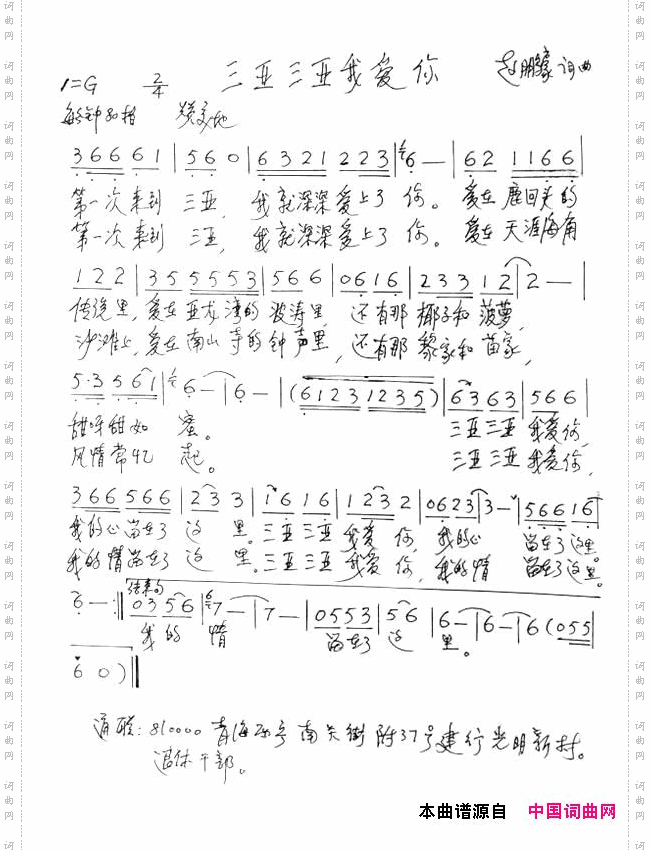 三亚三亚我爱你
1=G 2/4 赵鹏豪 词曲
每分钟80拍 赞美地
3 6 6 6 6 1 | 5 6 0 | 6 3 2 1 2 2 3 | 6 — | 6 2 1 1 6 6 |
第一次来到 三亚, 我就深深爱上了 你。 爱在 鹿回头的
第一次来到 三亚, 我就深深爱上了 你。 爱在 天涯海角
1 2 2 | 3 5 5 5 5 5 3 | 5 6 6 | 0 6 1 6 | 2 3 3 1 2 | 2 — |
传说里, 爱在亚龙湾的 波涛里, 还有那 椰子和 菠萝,
沙滩上, 爱在南山寺的 钟声里, 还有那 黎家和 苗家,
5·3 5 6 1 | 6 — | 6 — | (6 1 2 3 1 2 3 5) | 6 3 6 3 | 5 6 6 |
甜呀甜如 蜜。 三亚三亚 我爱你,
风情常忆 起。 三亚三亚 我爱你,
3 6 6 5 6 6 | 2 3 3 | 1 6 1 6 | 1 2 3 2 | 0 6 2 3 | 3 — | 5 6 6 1 6 |
我的心留在了 这 里。三亚三亚 我爱 你, 我的心 留在了这里。
我的情留在了 这 里。三亚三亚 我爱 你, 我的情 留在了这里。
6 — :‖ 结束句 0 3 5 6 | 7 — | 7 — | 0 5 5 3 | 5 6 | 6 — | 6 — | 6 (0 5 5 |
我的 情 留在了 这 里。
6 0 ) ‖
通联: 810000 青海西宁 南关街 附37号建行光明新村。
退休干部。
本曲谱源自 中国词曲网
词曲网